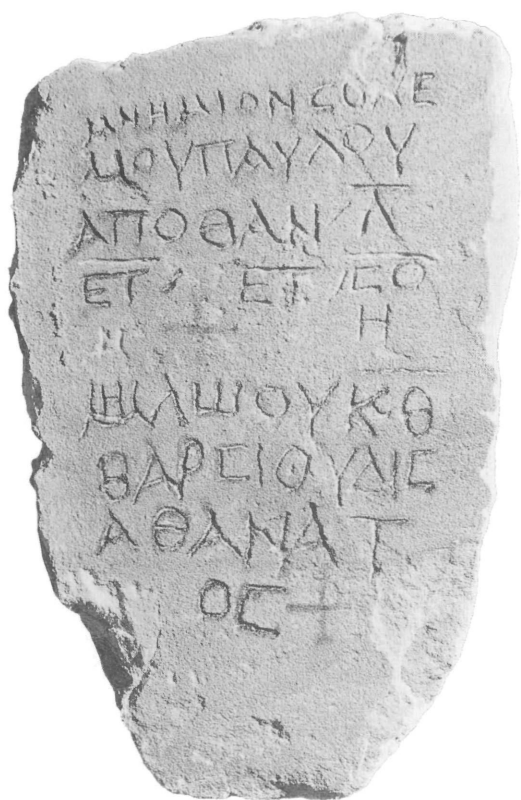 ΜΝΗΜΙΟΝCΟΛΕ
ΜΟΥΠΑΥΛΟΥ
ΑΠΟΘΑΝ/ Λ
ΕΤ/ ΕΤ/ CΟ
+ Η
ΛΩΟΥ ΚΘ
ΘΑΡCΙΟΥΔΙC
ΑΘΑΝΑΤ
ΟC +